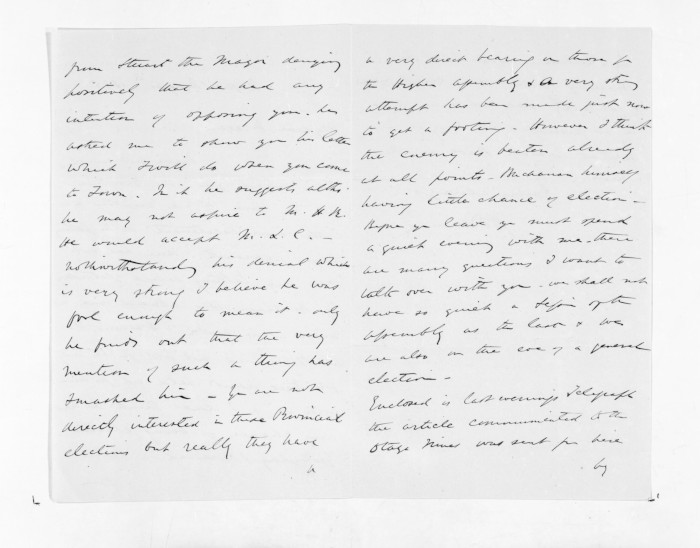 from Stuart the Mayor denying
positively that he had any
intention of opposing you. he
asked me to show you his letter
which I will do when you come
to Town. In it he suggests altho.
he may not aspire to M.H.R.
He would accept M.L.C. —
notwithstanding his denial which
is very strong I believe he was
fool enough to mean it. only
he finds out that the very
mention of such a thing has
smashed him — Ye are not
directly interested in these Provincial
elections but really they have
a
a very direct bearing on those for
the Higher assembly & a very strong
attempt has been made just now
to get a footing. However I think
the enemy is beaten already
at all points — Buchanan himself
having little chance of election —
before ye leave ye must spend
a quiet evening with me. there
are many questions I want to
talk over with you. we shall not
have so quiet a Session of the
Assembly as the last & we
are also on the eve of a general
election —
Enclosed is last evenings Telegraph
the article communicated to the
Otago Times was sent from here
by